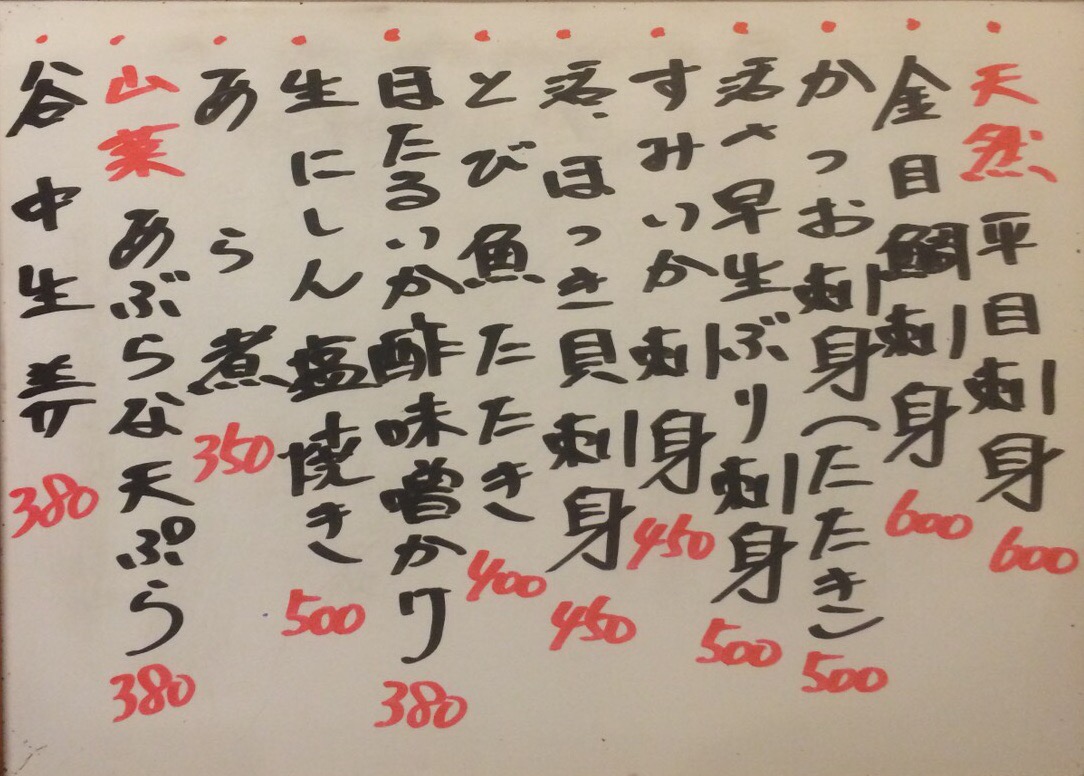 天然 平目刺身 600
金目鯛刺身 600
かつお刺身(たたき) 500
活〆早生ぶり刺身 500
すみいか刺身 450
活ほっき貝刺身 450
とび魚たたき 400
ほたるいか酢味曽かけ 380
生にしん塩焼き 500
あら煮 350
山菜 あぶらな天ぷら 380
谷中生姜 380